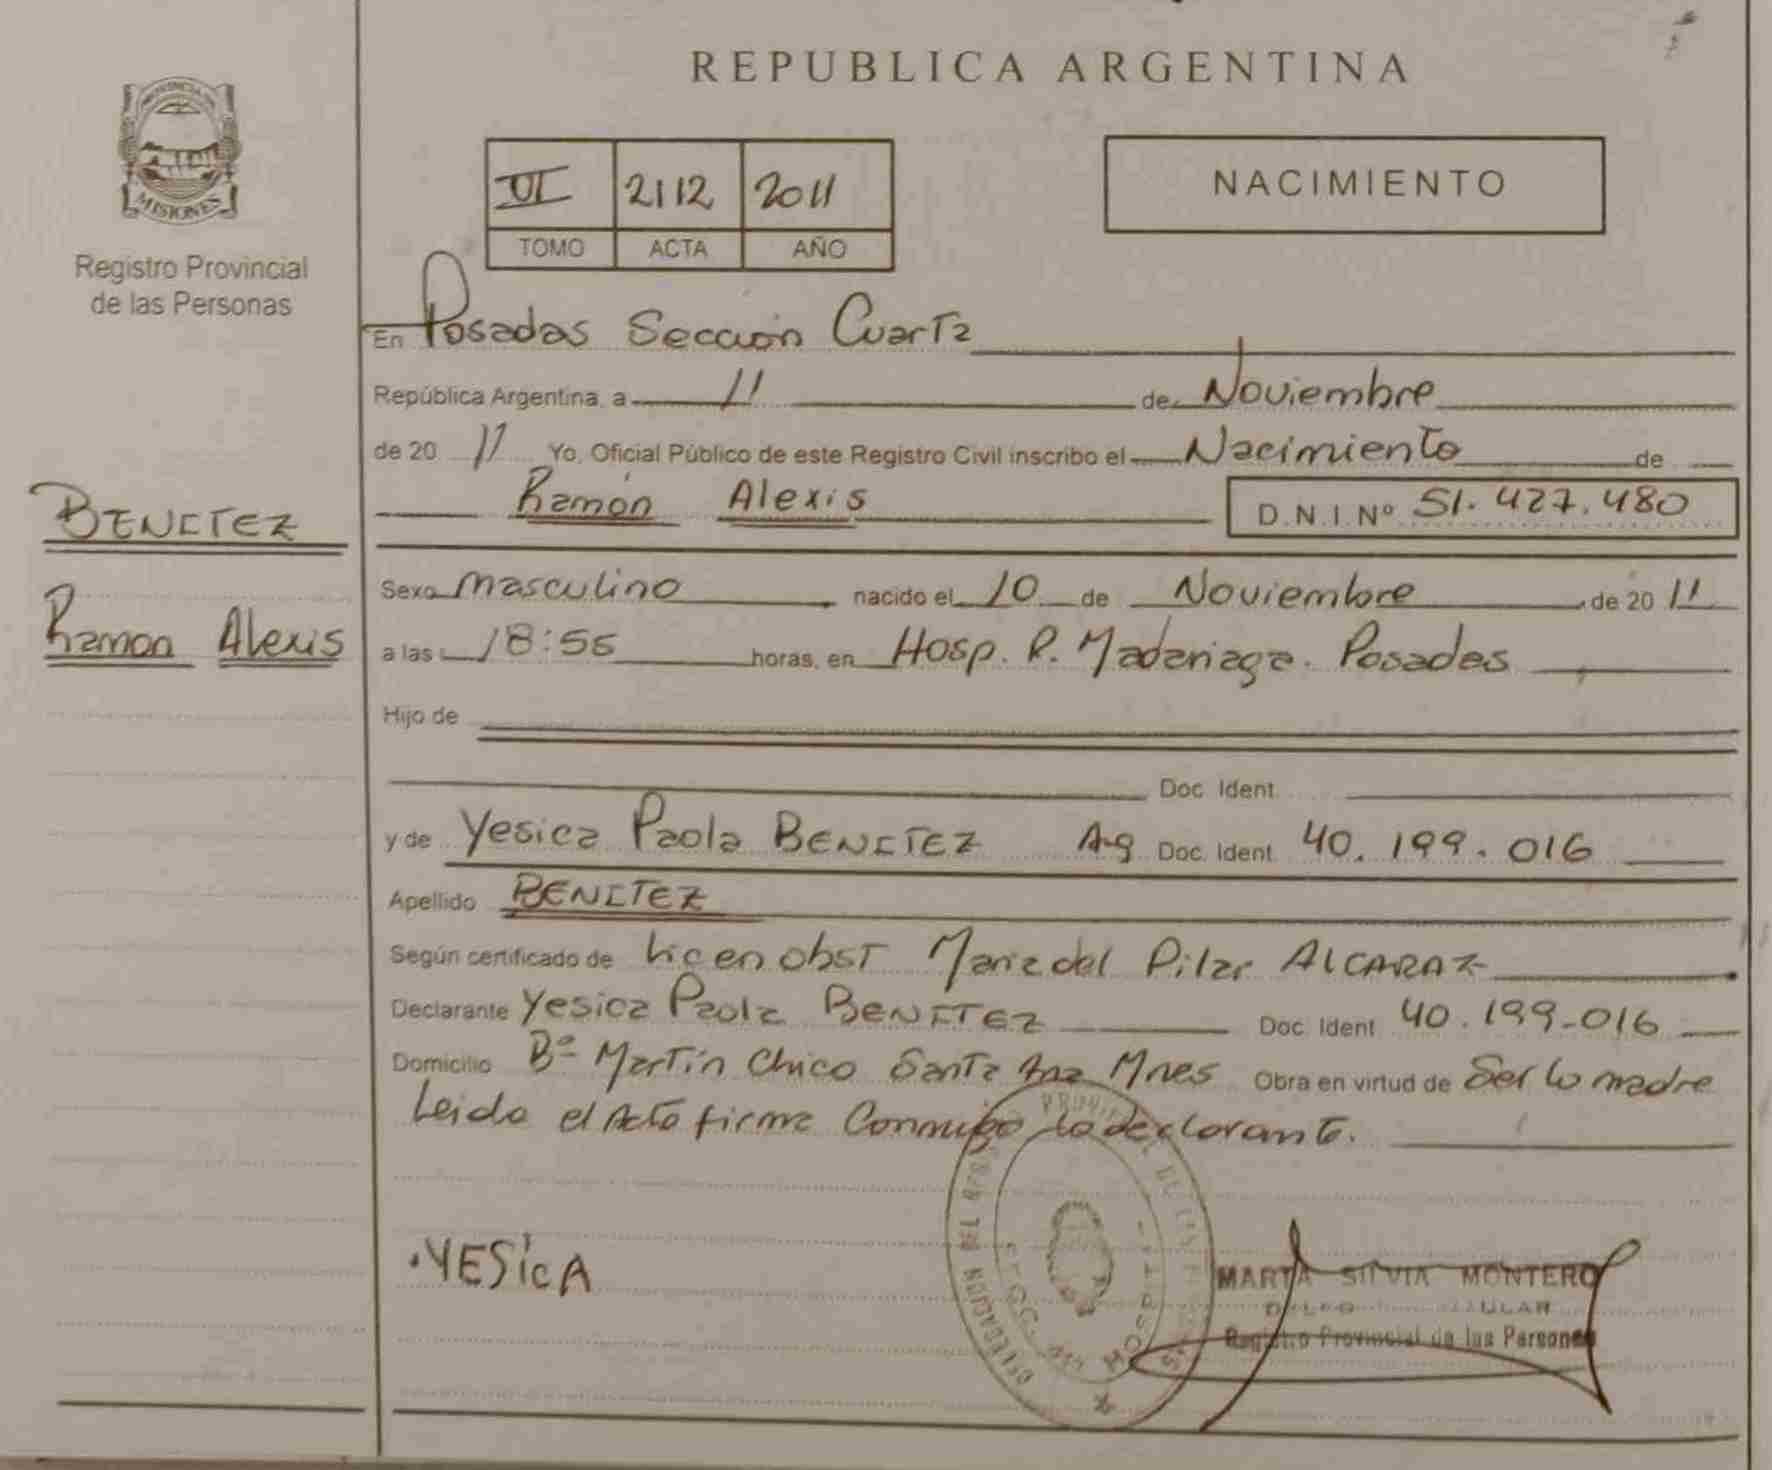 REPUBLICA ARGENTINA
PROVINCIA DE
MISIONES
Registro Provincial
de las Personas
VI 2112 2011
TOMO ACTA AÑO
NACIMIENTO
En Posadas Sección Cuarta
República Argentina, a 11 de Noviembre
de 20 11 Yo, Oficial Público de este Registro Civil inscribo el Nacimiento de
Ramón Alexis D.N.I. Nº 51.427.480
BENITEZ
Ramon Alexis
Sexo masculino nacido el 10 de Noviembre de 20 11
a las 18:55 horas, en Hosp. R. Madariaga. Posadas
Hijo de
Doc. Ident.
y de Yesica Paola BENITEZ Arg Doc. Ident. 40.199.016
Apellido BENITEZ
Según certificado de Licen obst Maria del Pilar ALCARAZ
Declarante Yesica Paola BENITEZ Doc. Ident. 40.199.016
Domicilio Bº Martín Chico Santa Ana Mnes Obra en virtud de Ser la madre
Leida el Acta firma Conmigo la declarante.
YESicA
MARTA SILVIA MONTERO
Registro Provincial de las Personas